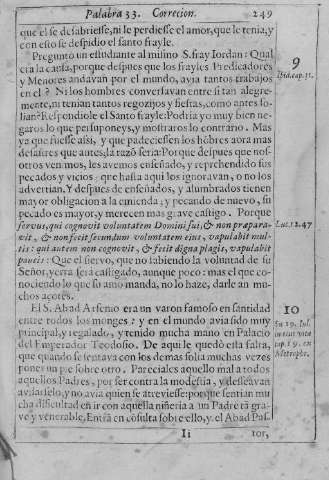 Palabra 33. Correcion. 249
que el se desabriesse, ni le perdiesse el amor, que le tenia, y
con esto se despidio el santo frayle.
Pregunto un estudiante al mismo S. fray Iordan: Qual
era la causa, porque despues que los frayles Predicadores
y Menores andavan por el mundo, avia tantos trabajos
en el? Ni los hombres conversavan entre si tan alegre-
mente, ni tenian tantos regozijos y fiestas, como antes so-
lian? Respondiole el Santo frayle: Podria yo muy bien ne-
garos lo que presuponeys, y mostraros lo contrario. Mas
ya que fuesse assi, y que padeciessen los hõbres aora mas
desastres que antes, la razõ seria: Porque despues que nos-
otros venimos, les avemos enseñado, y reprehendido sus
pecados y vicios, que hasta aqui los ignoravan, o no los
advertian. Y despues de enseñados, y alumbrados tienen
mayor obligacion a la emienda; y pecando de nuevo, su
pecado es mayor, y merecen mas grave castigo. Porque
servus, qui cognovit voluntatem Domini sui, & non prepara-
vit, & non fecit secundum voluntatem eius, vapulabit mul-
tis: qui autem non cognovit, & fecit digna plagis, vapulabit
paucis: Que el siervo, que no sabiendo la voluntad de su
Señor, yerra serà castigado, aunque poco: mas el que co-
nociendo lo que su amo manda, no lo haze, darle an mu-
chos açotes.
El S. Abad Arsenio era un varon famoso en santidad
entre todos los monges: y en el mundo avia sido muy
principal, y regalado, y tenido mucha mano en Palacio
del Emperador Teodosio. De aqui le quedò esta falta,
que quando se sentava con los demas solia muchas vezes
poner un pie sobre otro. Pareciales aquello mal a todos
aquellos Padres, por ser contra la modestia, y desseavan
avisarselo, y no avia quien se atreviesse: porque sentian mu-
cha dificultad en ir con aquella niñeria a un Padre tã gra-
ve y venerable. Entrã en cõsulta sobre ello, y el Abad Pas-
Ii tor,
9
Ibid. cap. 31.
Luc. 12.47
10
Su 19. Iul.
cap. 19. en
Metaphr.